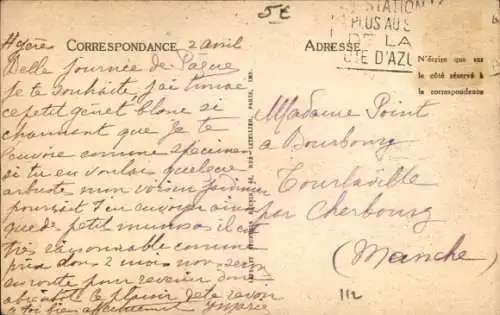 5c
STATION
PLUS AU S
DE LA
CÔTE D'AZU
Hyères
2 avril
CORRESPONDANCE
ADRESSE
N'écrire que sur
le côté réservé à
la correspondance
Belle journée de Pâque
je te souhaite, j'ai
ce petit genêt blanc si
charmant que je te
l'envoie comme specimen
si tu en voulais quelque
arbuste mon voisin jardinier
pourrait t'en envoyer ainsi
que des petits mimosa il est
très raisonnable comme
prix dans 2 mois nous serons
en route pour revenir donc
à bientôt le plaisir de te revoir
à toi bien affectueusement
Madame Point
a Bourbourg
Tourlaville
par Cherbourg
(Manche)
112